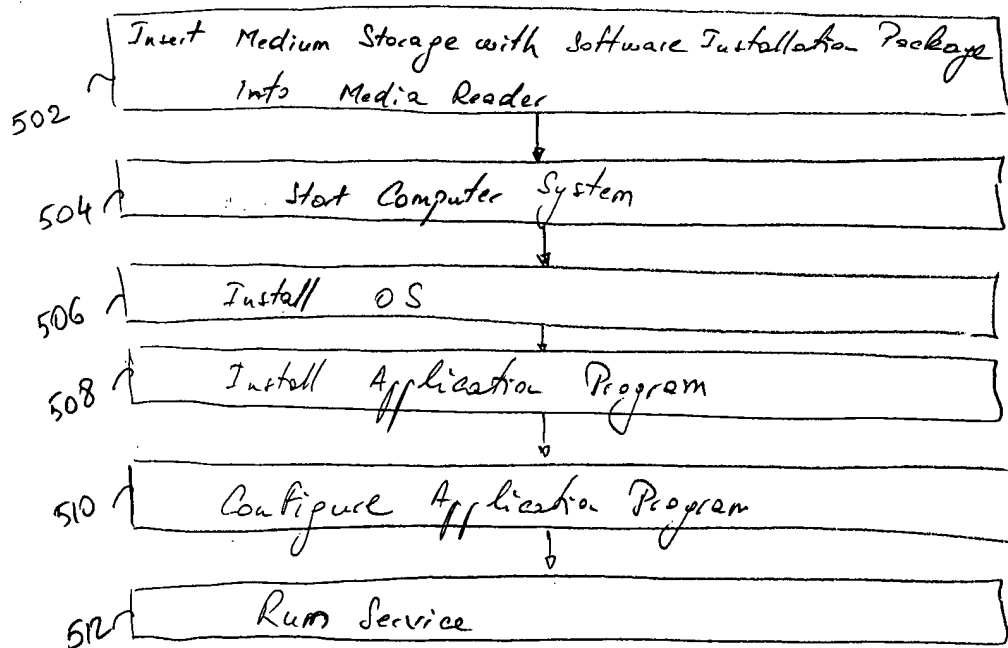 Insert Medium Storage with Software Installation Package
Into Media Reader
502
Start Computer System
504
Install OS
506
Install Application Program
508
Configure Application Program
510
Run Service
512